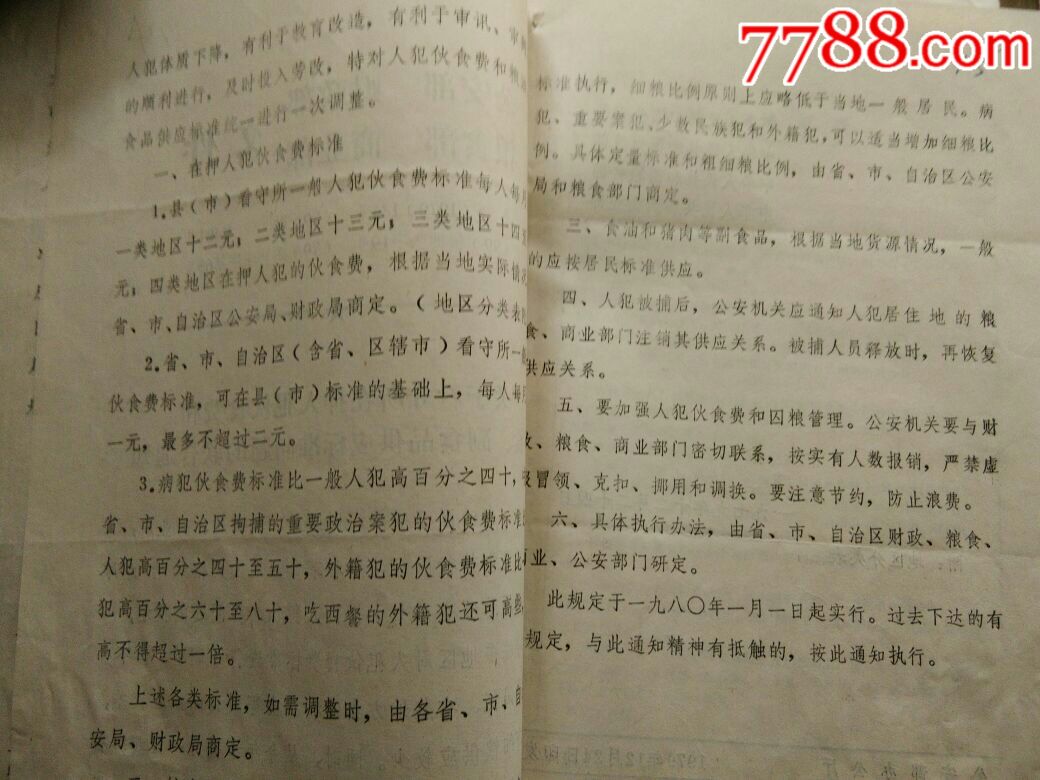 7788.com
人犯体质下降，有利于教育改造，有利于审讯、审
的顺利进行，及时投入劳改，特对人犯伙食费和粮
食品供应标准统一进行一次调整。
一、在押人犯伙食费标准
1.县（市）看守所一般人犯伙食费标准每人每月
一类地区十二元；二类地区十三元；三类地区十四
元；四类地区在押人犯的伙食费，根据当地实际情况
省、市、自治区公安局、财政局商定。（地区分类表附
2.省、市、自治区（含省、区辖市）看守所一般
伙食费标准，可在县（市）标准的基础上，每人每月
一元，最多不超过二元。
3.病犯伙食费标准比一般人犯高百分之四十，
省、市、自治区拘捕的重要政治案犯的伙食费标准
人犯高百分之四十至五十，外籍犯的伙食费标准比
犯高百分之六十至八十，吃西餐的外籍犯还可高些
高不得超过一倍。
上述各类标准，如需调整时，由各省、市、自
安局、财政局商定。
标准执行，细粮比例原则上应略低于当地一般居民。病
犯、重要案犯、少数民族犯和外籍犯，可以适当增加细粮比
例。具体定量标准和祖细粮比例，由省、市、自治区公安
局和粮食部门商定。
三、食油和猪肉等副食品，根据当地货源情况，一般
的应按居民标准供应。
四、人犯被捕后，公安机关应通知人犯居住地的粮
食、商业部门注销其供应关系。被捕人员释放时，再恢复
供应关系。
五、要加强人犯伙食费和囚粮管理。公安机关要与财
政、粮食、商业部门密切联系，按实有人数报销，严禁虚
报冒领、克扣、挪用和调换。要注意节约，防止浪费。
六、具体执行办法，由省、市、自治区财政、粮食、
商业、公安部门研定。
此规定于一九八〇年一月一日起实行。过去下达的有
规定，与此通知精神有抵触的，按此通知执行。